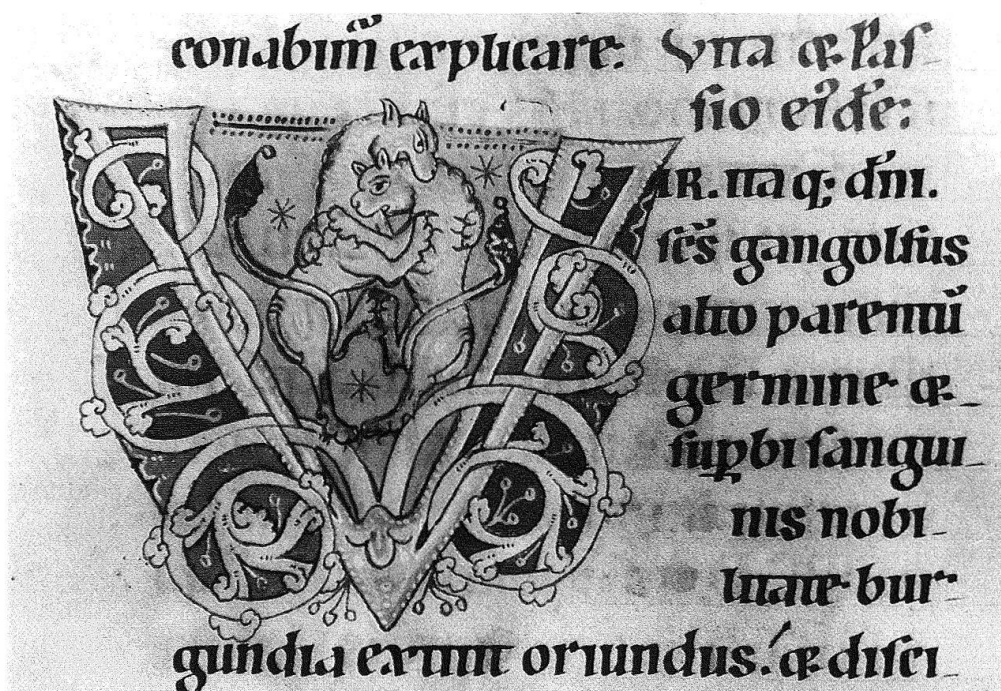 conabim̄ explicare: Vita & Paſ-
ſio eiꝰdē:
VIR. itaq; dn̄i.
ſcs̄ gangolfus
alto parentū
germine &
ſuꝑbi ſangui-
nis nobi-
litate bur-
gundia extitit oriundus. & diſci-